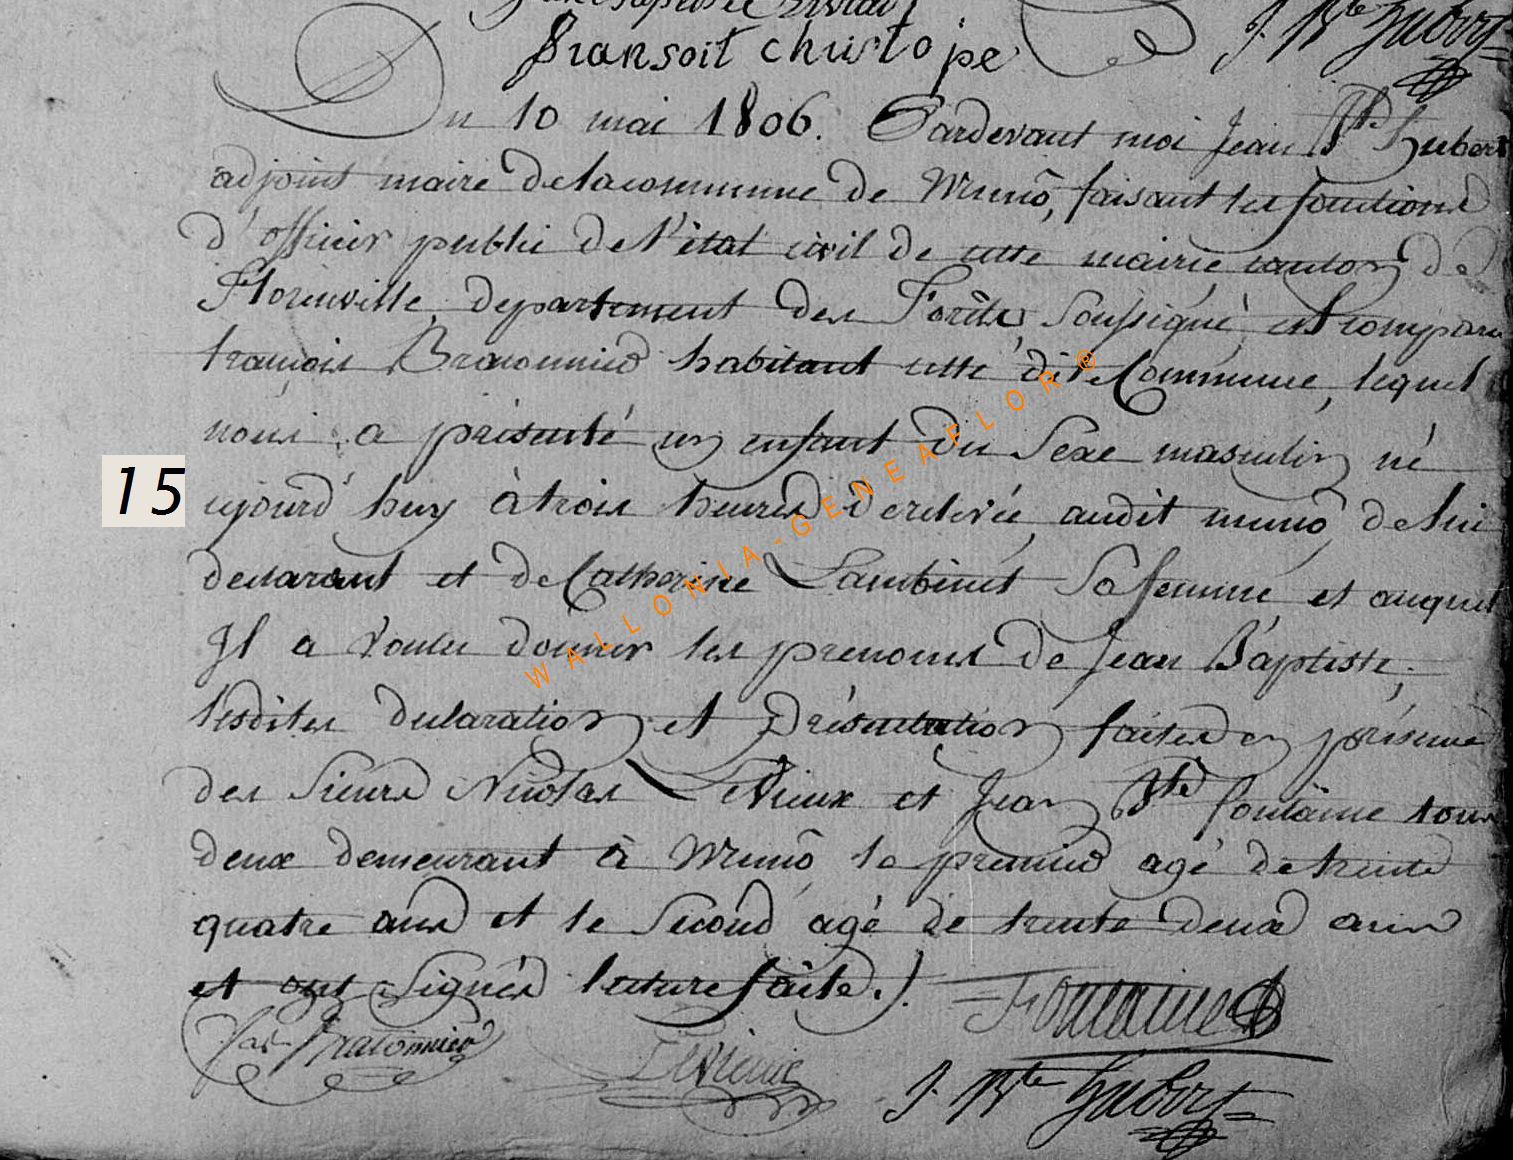 fransoit christope
J. Bte Hubert
Du 10 mai 1806. Pardevant moi Jean Bte hubert
adjoint maire delacommune de Muno, faisant les fonctions
d'officier public de l'état civil de cette mairie, canton de
Florenville, departement des Forêts, soussigné, est comparu
françois Braconnier habitant cette dite Commune, lequel
nous a présenté un enfant du Sexe masculin né
ujourd'huy à trois heures d'erelevée, audit muno, de lui
declarant et de Catherine Lambinet Sa femme et auquel
Il a voulu donner les prenoms de Jean Baptiste;
lesdites declaration et présentation faites en présence
des Sieurs Nicolas LeVieux et Jean Bte fontaine tous
deux demeurant à Muno, le premier agé de trente
quatre ans et le Second agé de trente deux ans
et ont signés lecture faite.).
Fontaine
fas Braconnier
LeVieux
J. Bte Hubert
15
WALLONIA-GENEAFLOR®